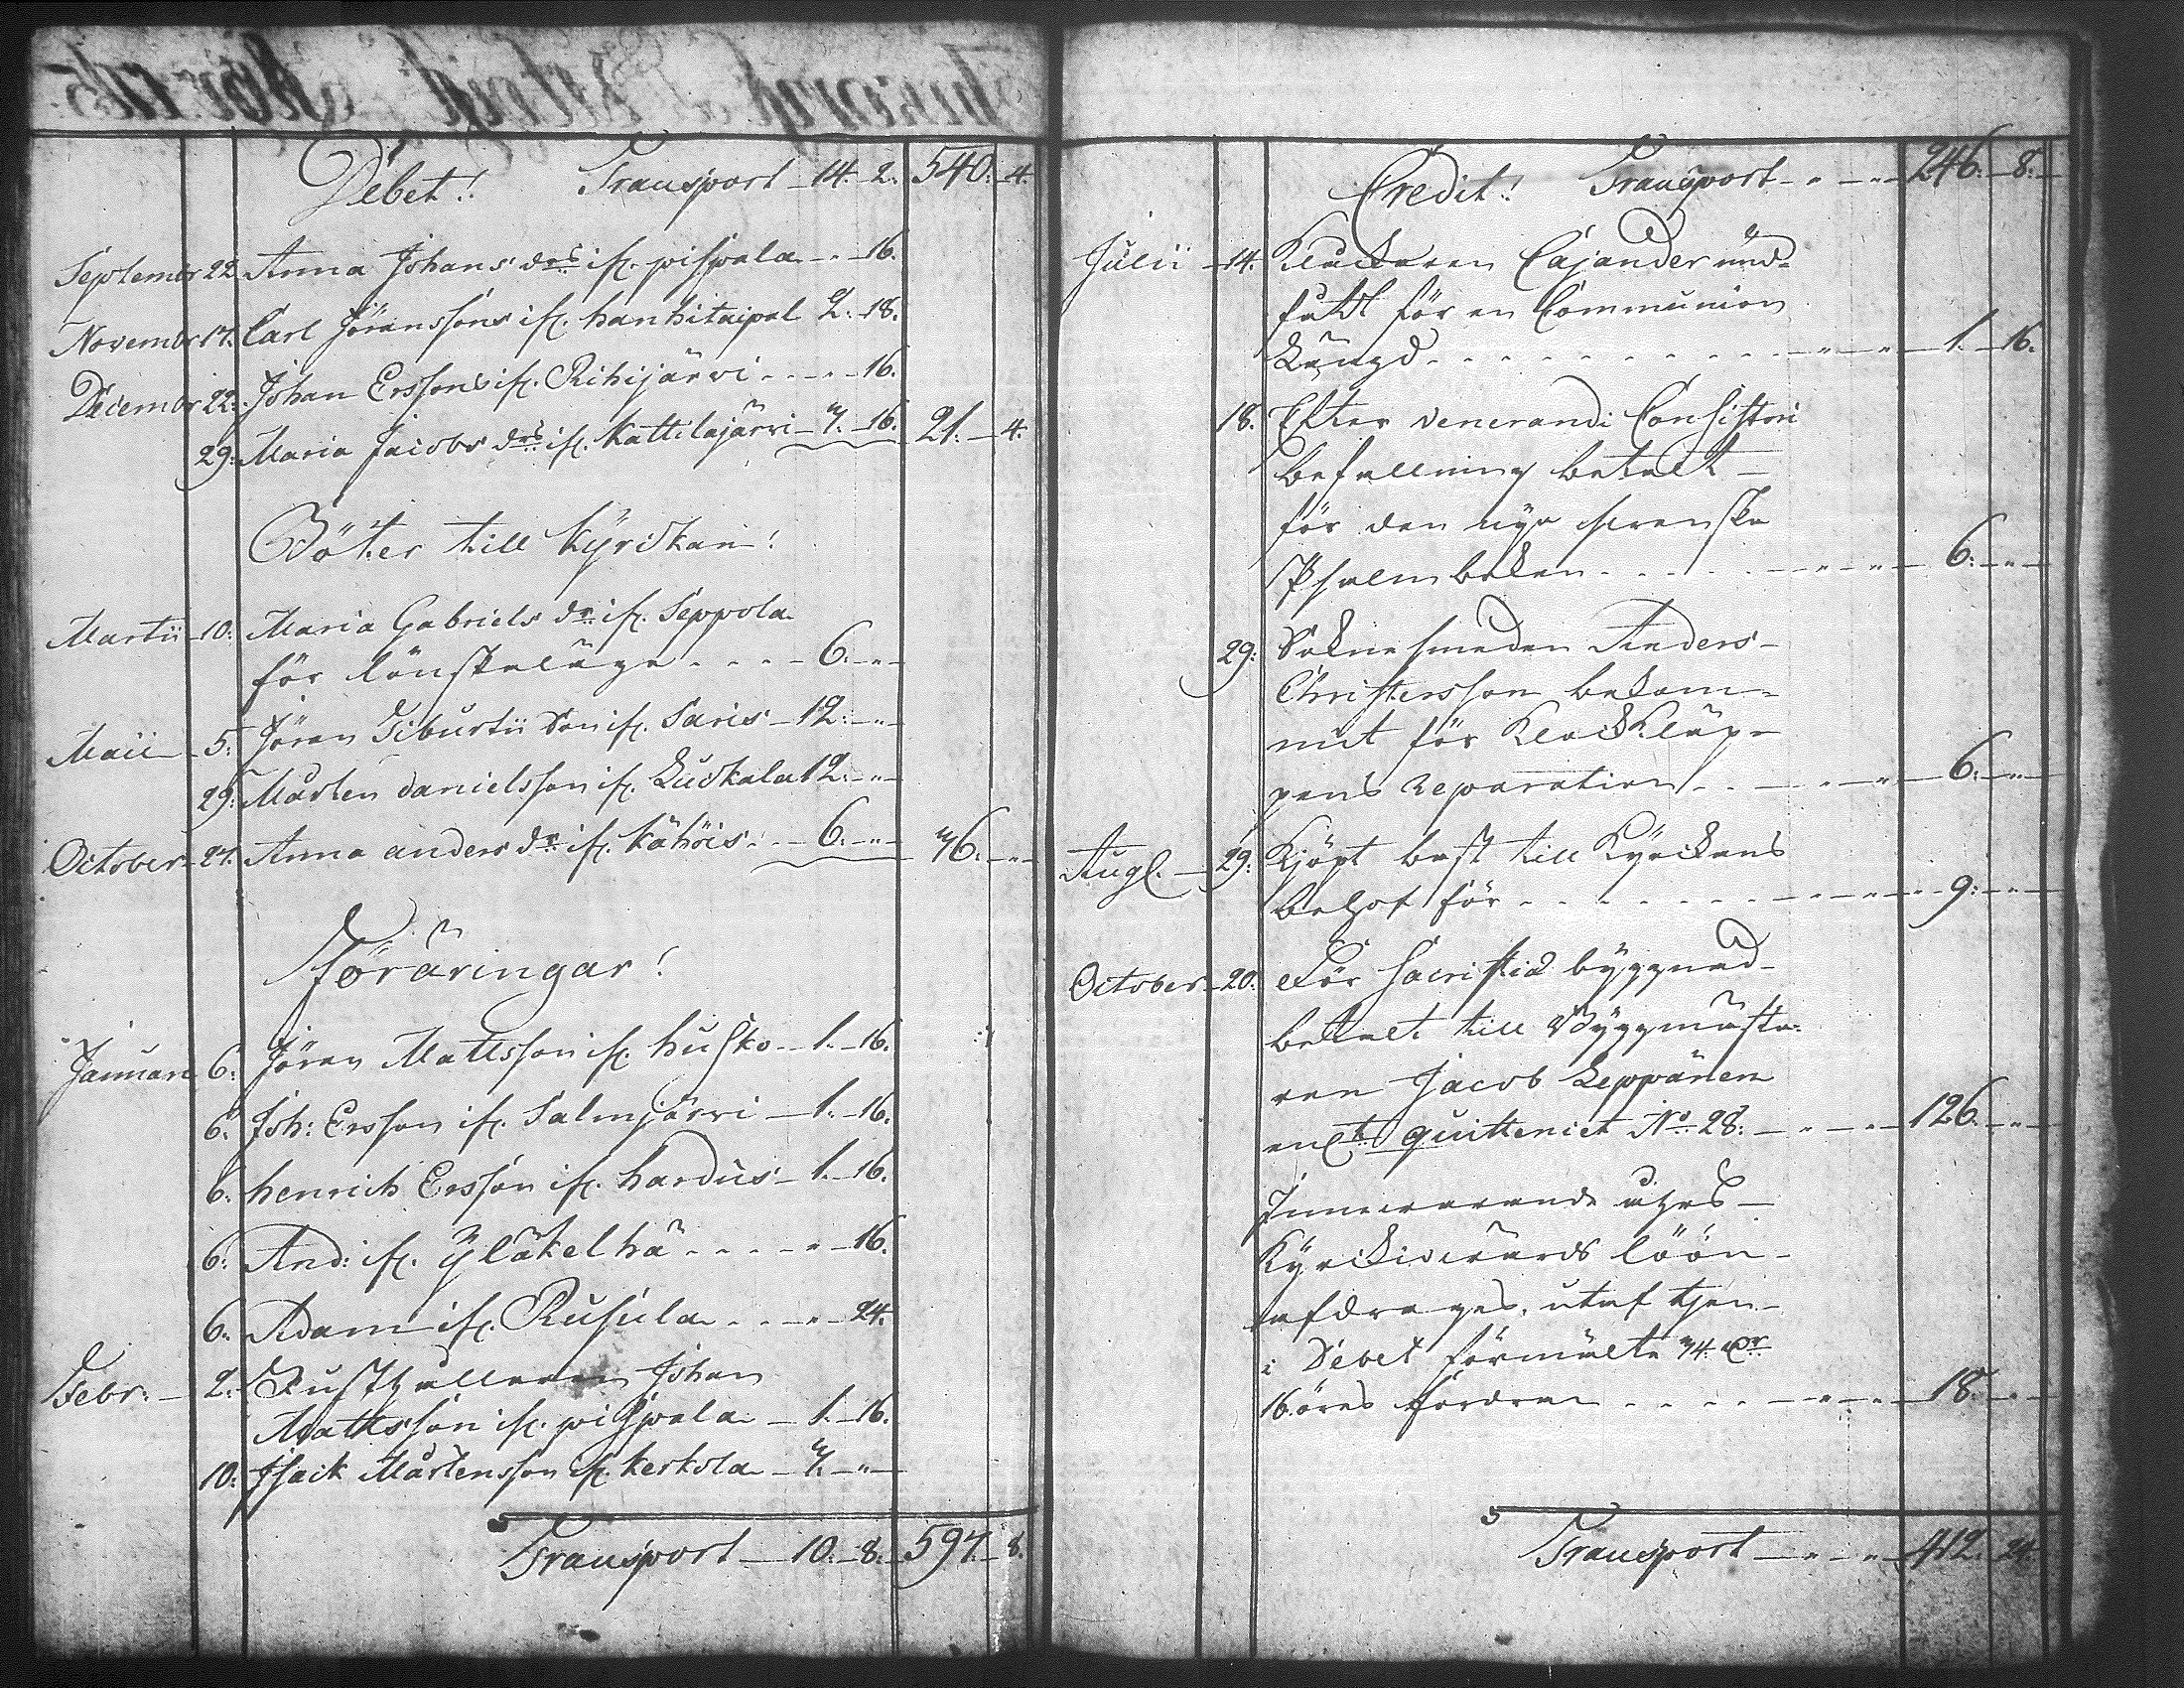 Debet! Transport - 14. 2. 540. - 4.
September 22. Anna Johans drs if. pispala - - 16.
November 17. Carl Jöranssons if. hanhitaipal 2. 18.
December 22. Johan Erssons if. Rihijärvi - - - - 16.
29. Maria Jacobs drs if. Kattilajärvi - 7. - 16. 21. - 4.
Böter till Kyrckan!
Martii - 10. Maria Gabriels dr if. Seppola
för lönskaläge - - - - 6. - " -
Maii - 5. Jöran Tiburtii Son if. Saris - 12. - " -
29. Mårten danielsson if. Luckala 12. - " -
October - 27. Anna anders dr. if. Kähöis - - 6. - " - 36. - " -
Föräringar!
Januari 6. Jöran Mattsson if. husko - - 1. - 16.
6. Joh: Ersson if. Salmjärvi - 1. - 16.
6. henrich Ersson if. hardus - 1. - 16.
6. And: if. Yläkelhä - - - - " - 16.
6. Adam if. Rusula - - - " - 24.
Febr. - 2. Rusthållaren Johan
Mattsson if. pispala - 1. - 16.
10. Isack Mårtensson if. Kerkola - 3. - " -
Transport - 10. - 8. 597. - 8.
Credit! Transport - " - " - 246. - 8. -
Julii - 14. Kluckaren Cajander und-
fått för en Communion
Längd - - - - - - - - " - " - 1. - 16.
18. Efter venerandi Consistorii
befallning betalt -
för den nya svenska
Psalmboken - - - - - " - " - 6. - " -
29. Soknesmeden Anders -
Christersson bekom-
mit för Klockkläp-
pens reparation - - - " - " - 6. - " -
Augl. - 29. Kjöpt bast till Kyrckans
behof för - - - - - - " - " - 9. - " -
October - 20. För Sacristie byggnad -
betalt till Byggmästa-
ren Jacob Leppänen
enl. quittencet No 28. - " - " - 126. - " -
Innewarande åhrs -
Kyrckiowärds löön -
afdrages, utaf tjen -
i Debet förmälte 74 dr
16. öres fordran - - - - " - " - 18. - " -
Transport - " - " - 412. 24.